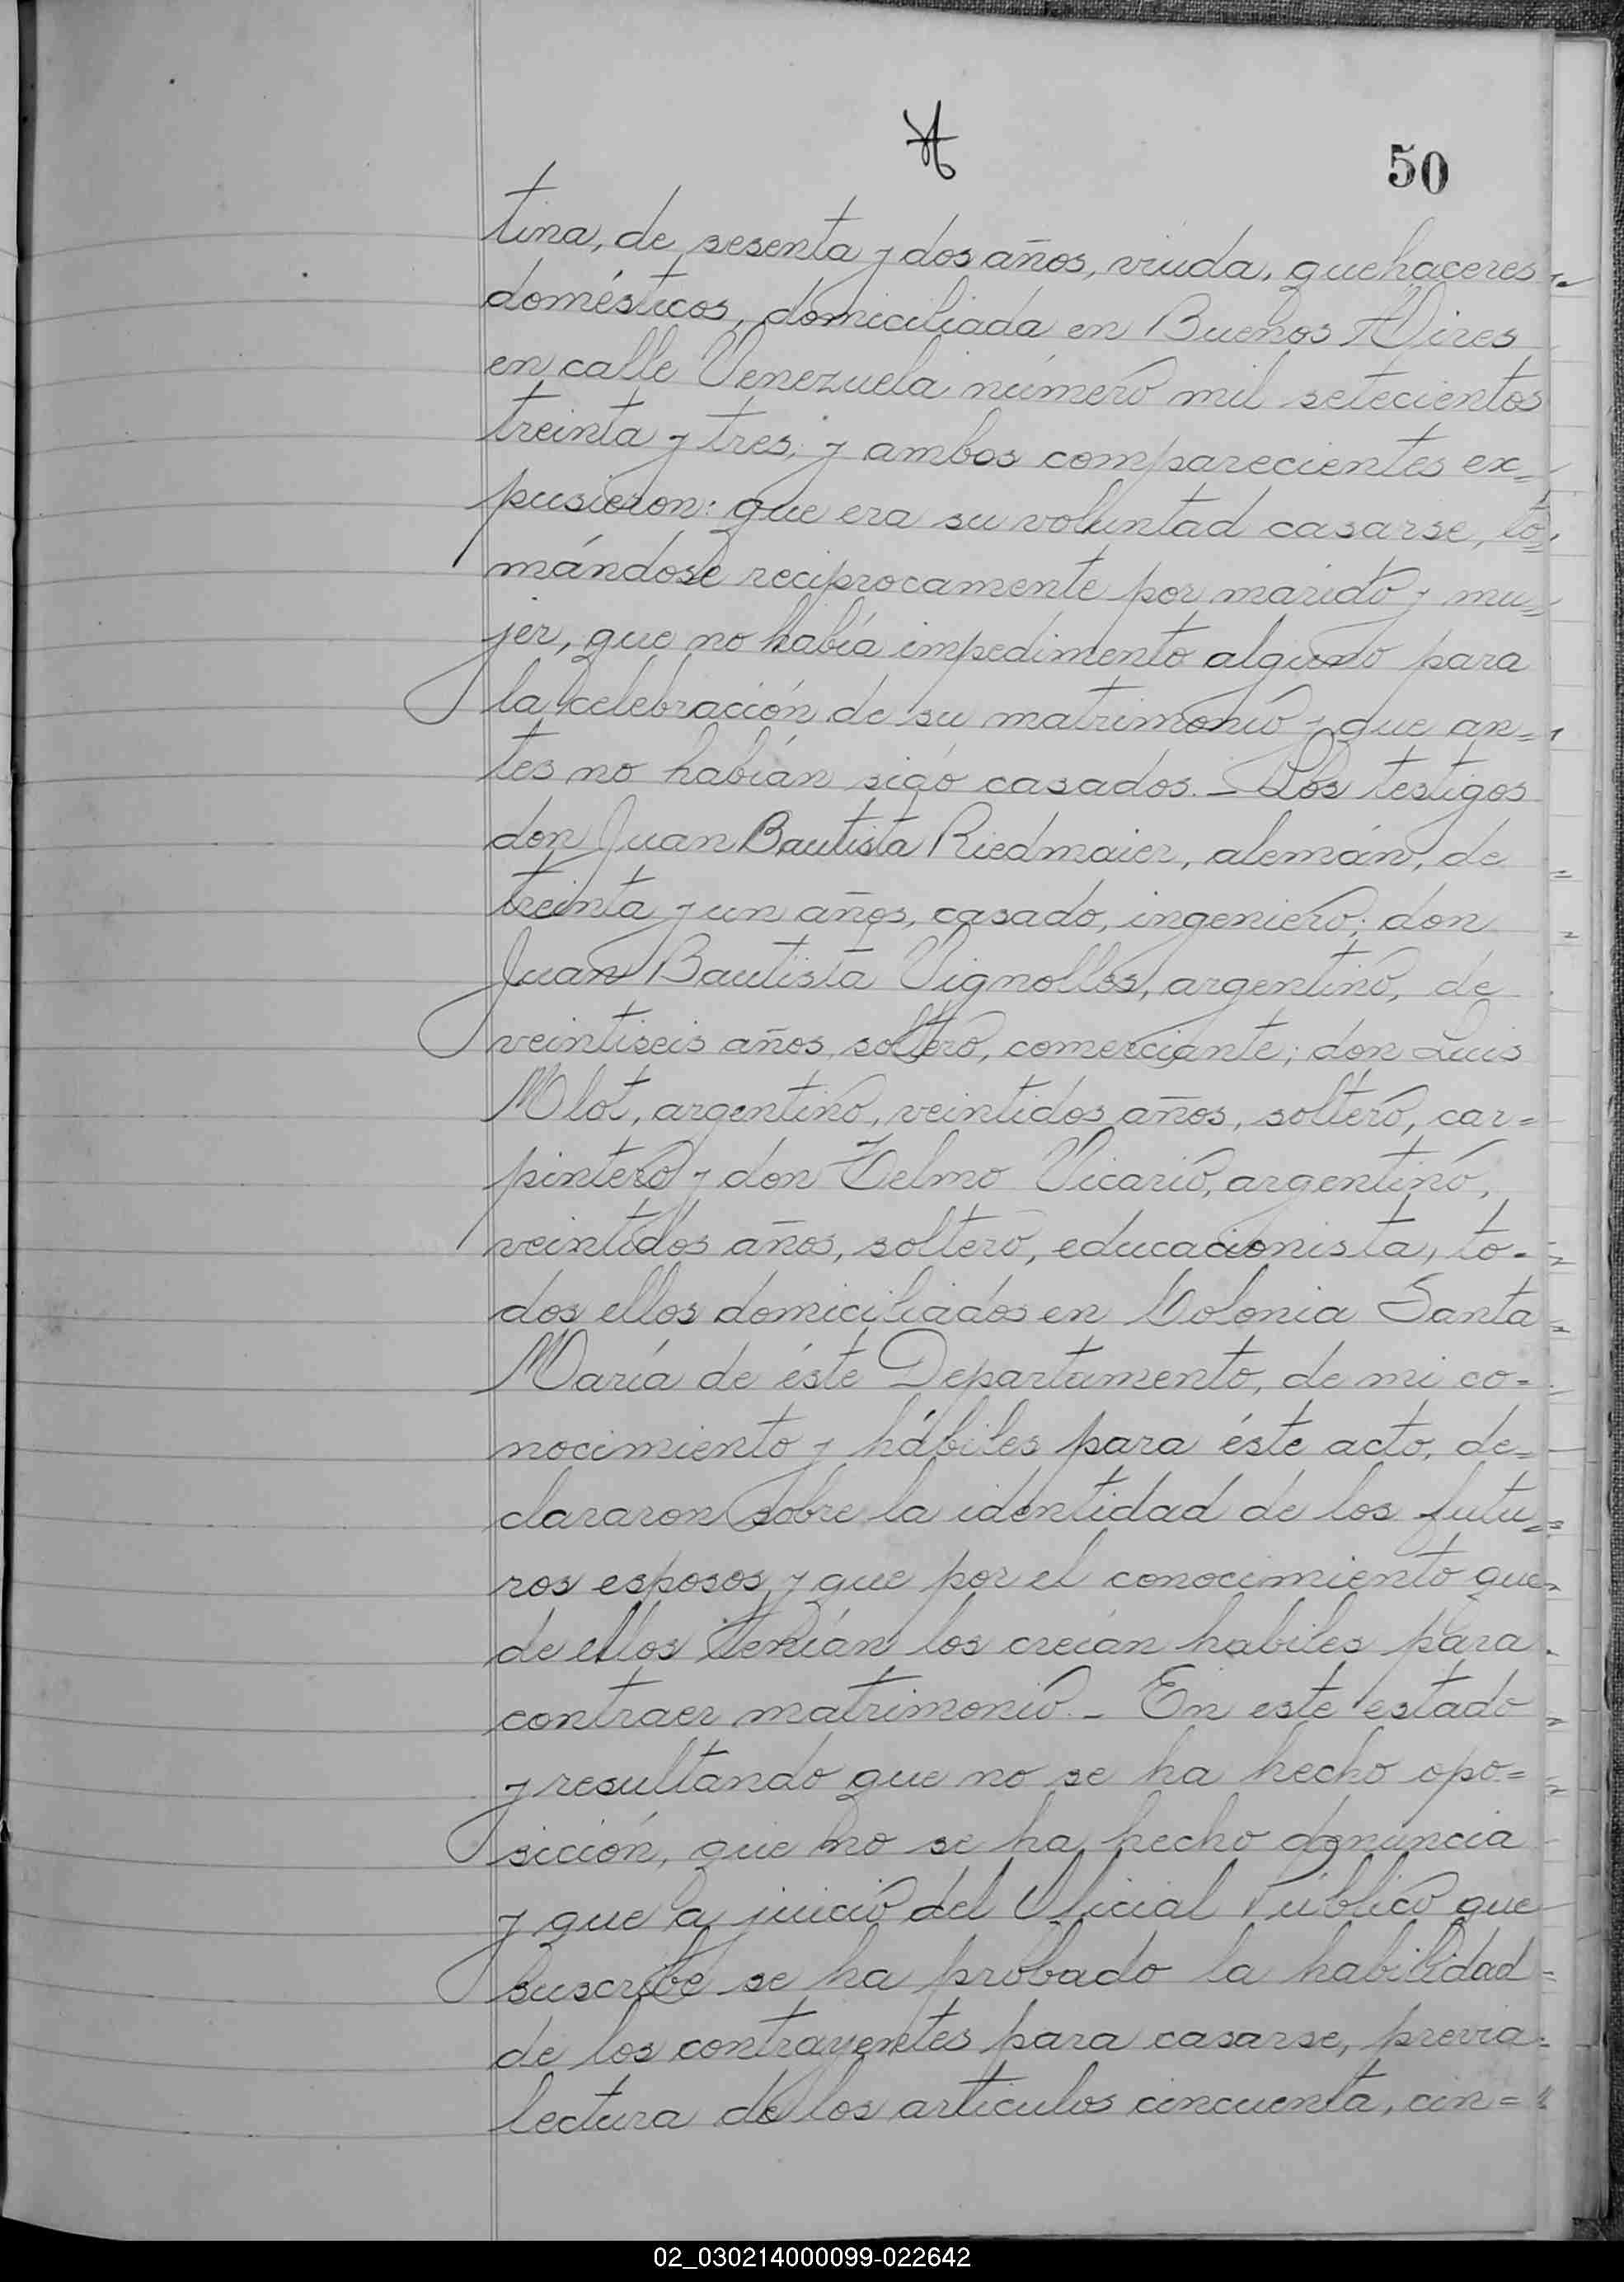 50
tina, de sesenta y dos años, viuda, quehaceres
domésticos, domiciliada en Buenos Aires
en calle Venezuela número mil setecientos
treinta y tres; y ambos comparecientes ex=
pusieron: que era su voluntad casarse, to=
mándose reciprocamente por marido y mu=
jer, que no había impedimento alguno para
la celebración de su matrimonio y que an=
tes no habían sido casados. _ Los testigos
don Juan Bautista Riedmaier, alemán, de
treinta y un años, casado, ingeniero; don
Juan Bautista Vignolles, argentino, de
veintiseis años, soltero, comerciante; don Luis
Mlot, argentino, veintidos años, soltero, car=
pintero y don Telmo Vicario, argentino,
veintidos años, soltero, educacionista, to=
dos ellos domiciliados en Colonia Santa
María de éste Departamento, de mi co=
nocimiento y hábiles para éste acto, de=
clararon sobre la identidad de los futu=
ros esposos y que por el conocimiento que
de ellos tenían los creían habiles para
contraer matrimonio. _ En este estado
y resultando que no se ha hecho opo=
sición, que no se ha hecho denuncia
y que a juicio del Oficial Público que
suscribe se ha probado la habilidad
de los contrayentes para casarse, previa
lectura de los artículos cincuenta, cin=
02_030214000099-022642